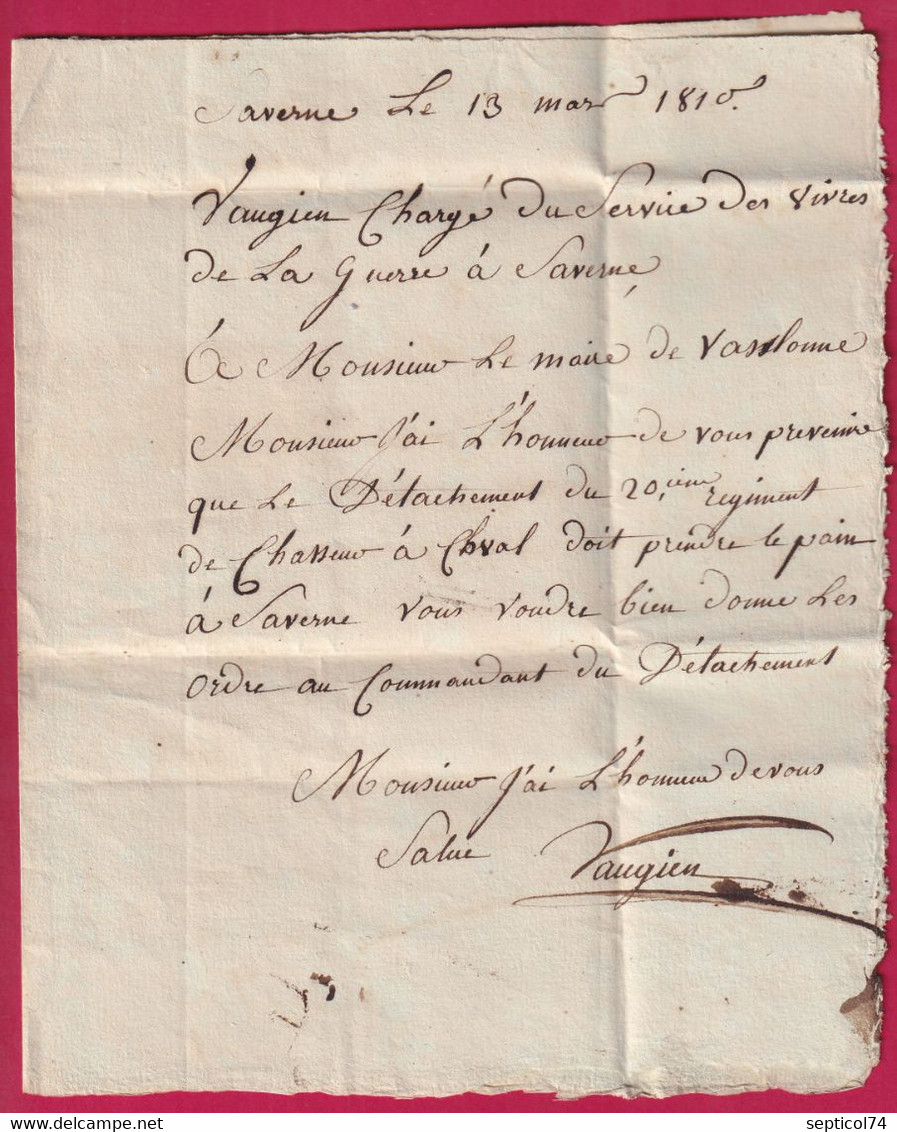 Saverne Le 13 mars 1810.
Vaugien Chargé du Service des vivres
de La Guerre à Saverne,
A Monsieur Le maire de Vasslonne
Monsieur J'ai L'honneur de vous prevenire
que Le Détachement du 20.ième regiment
de Chasseur à Chval doit prendre le pain
à Saverne vous voudre bien donne Les
ordre au Commandant du Détachement
Monsieur J'ai L'honneur de vous
Salue Vaugien
septicol74